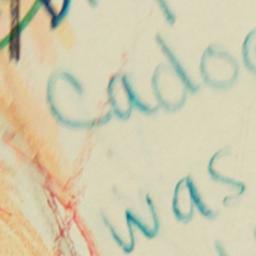 Cadoo
was